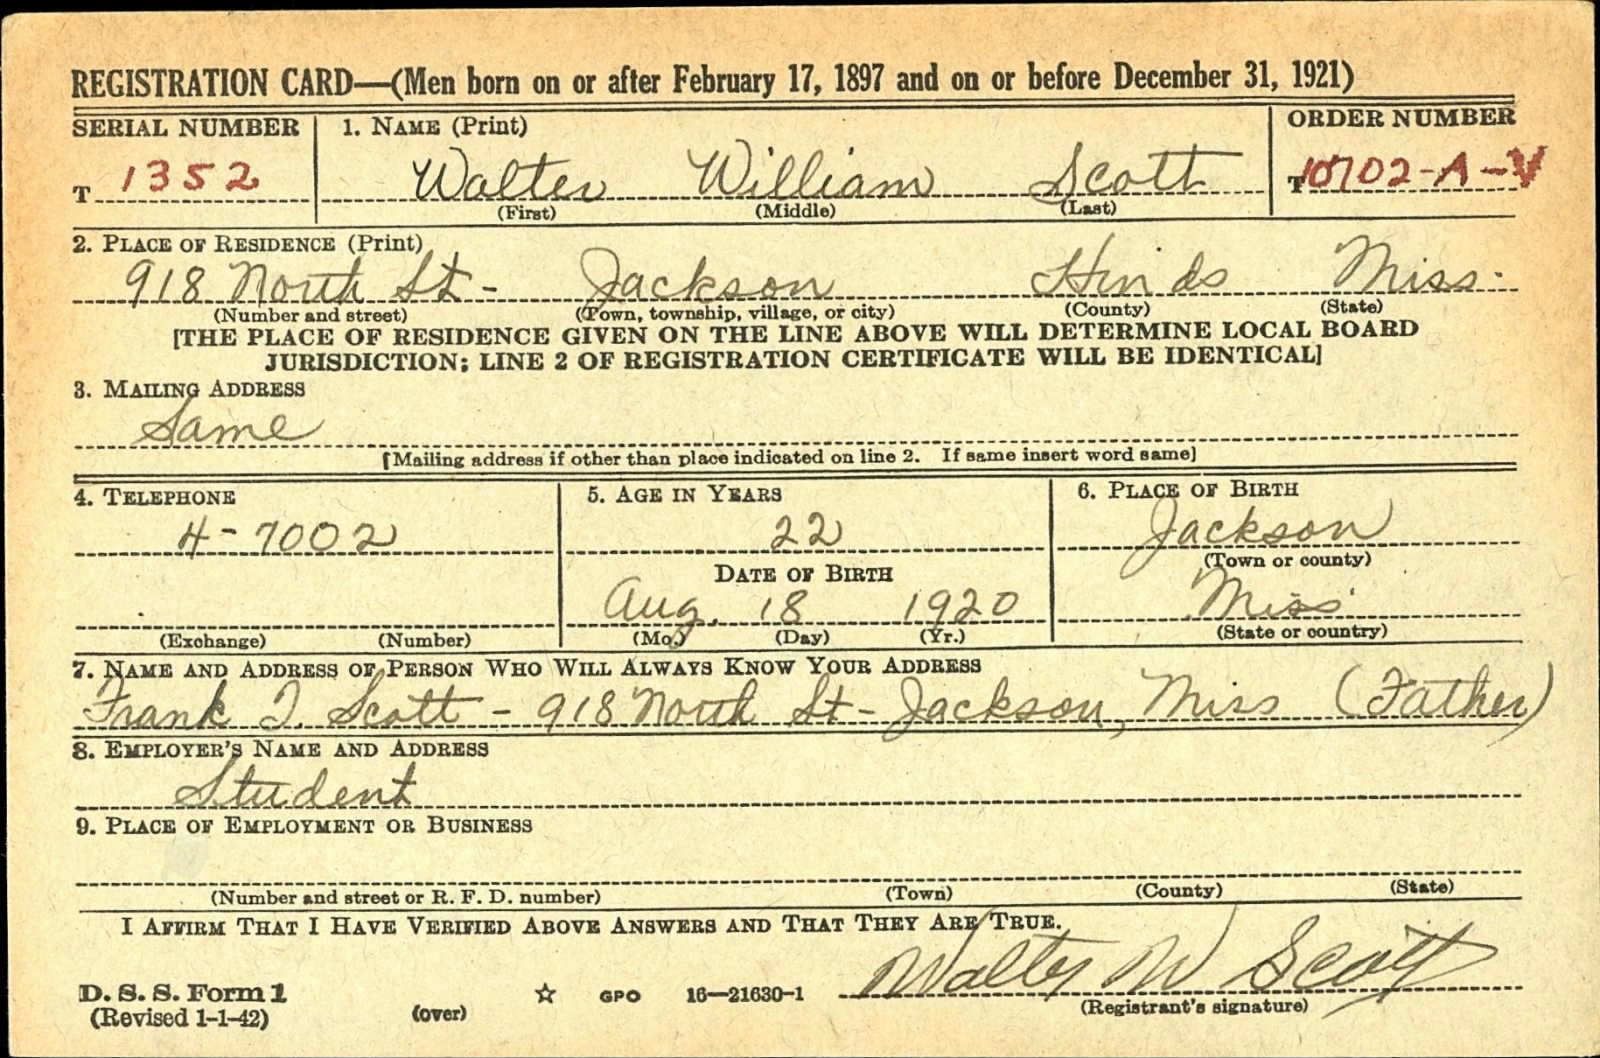 REGISTRATION CARD—(Men born on or after February 17, 1897 and on or before December 31, 1921)
SERIAL NUMBER
1. NAME (Print)
ORDER NUMBER
T 1352
Walter William Scott
T 10702-A-V
(First) (Middle) (Last)
2. PLACE OF RESIDENCE (Print)
918 North St- Jackson Hinds Miss.
(Number and street) (Town, township, village, or city) (County) (State)
[THE PLACE OF RESIDENCE GIVEN ON THE LINE ABOVE WILL DETERMINE LOCAL BOARD
JURISDICTION; LINE 2 OF REGISTRATION CERTIFICATE WILL BE IDENTICAL]
3. MAILING ADDRESS
Same
[Mailing address if other than place indicated on line 2. If same insert word same]
4. TELEPHONE
4-7002
(Exchange) (Number)
5. AGE IN YEARS
22
DATE OF BIRTH
Aug. 18 1920
(Mo.) (Day) (Yr.)
6. PLACE OF BIRTH
Jackson
(Town or county)
Miss.
(State or country)
7. NAME AND ADDRESS OF PERSON WHO WILL ALWAYS KNOW YOUR ADDRESS
Frank T. Scott - 918 North St - Jackson, Miss (Father)
8. EMPLOYER'S NAME AND ADDRESS
Student
9. PLACE OF EMPLOYMENT OR BUSINESS
(Number and street or R. F. D. number) (Town) (County) (State)
I AFFIRM THAT I HAVE VERIFIED ABOVE ANSWERS AND THAT THEY ARE TRUE.
Walter W Scott
(Registrant's signature)
D. S. S. Form 1
(Revised 1-1-42)
(over)
☆ GPO 16—21630-1